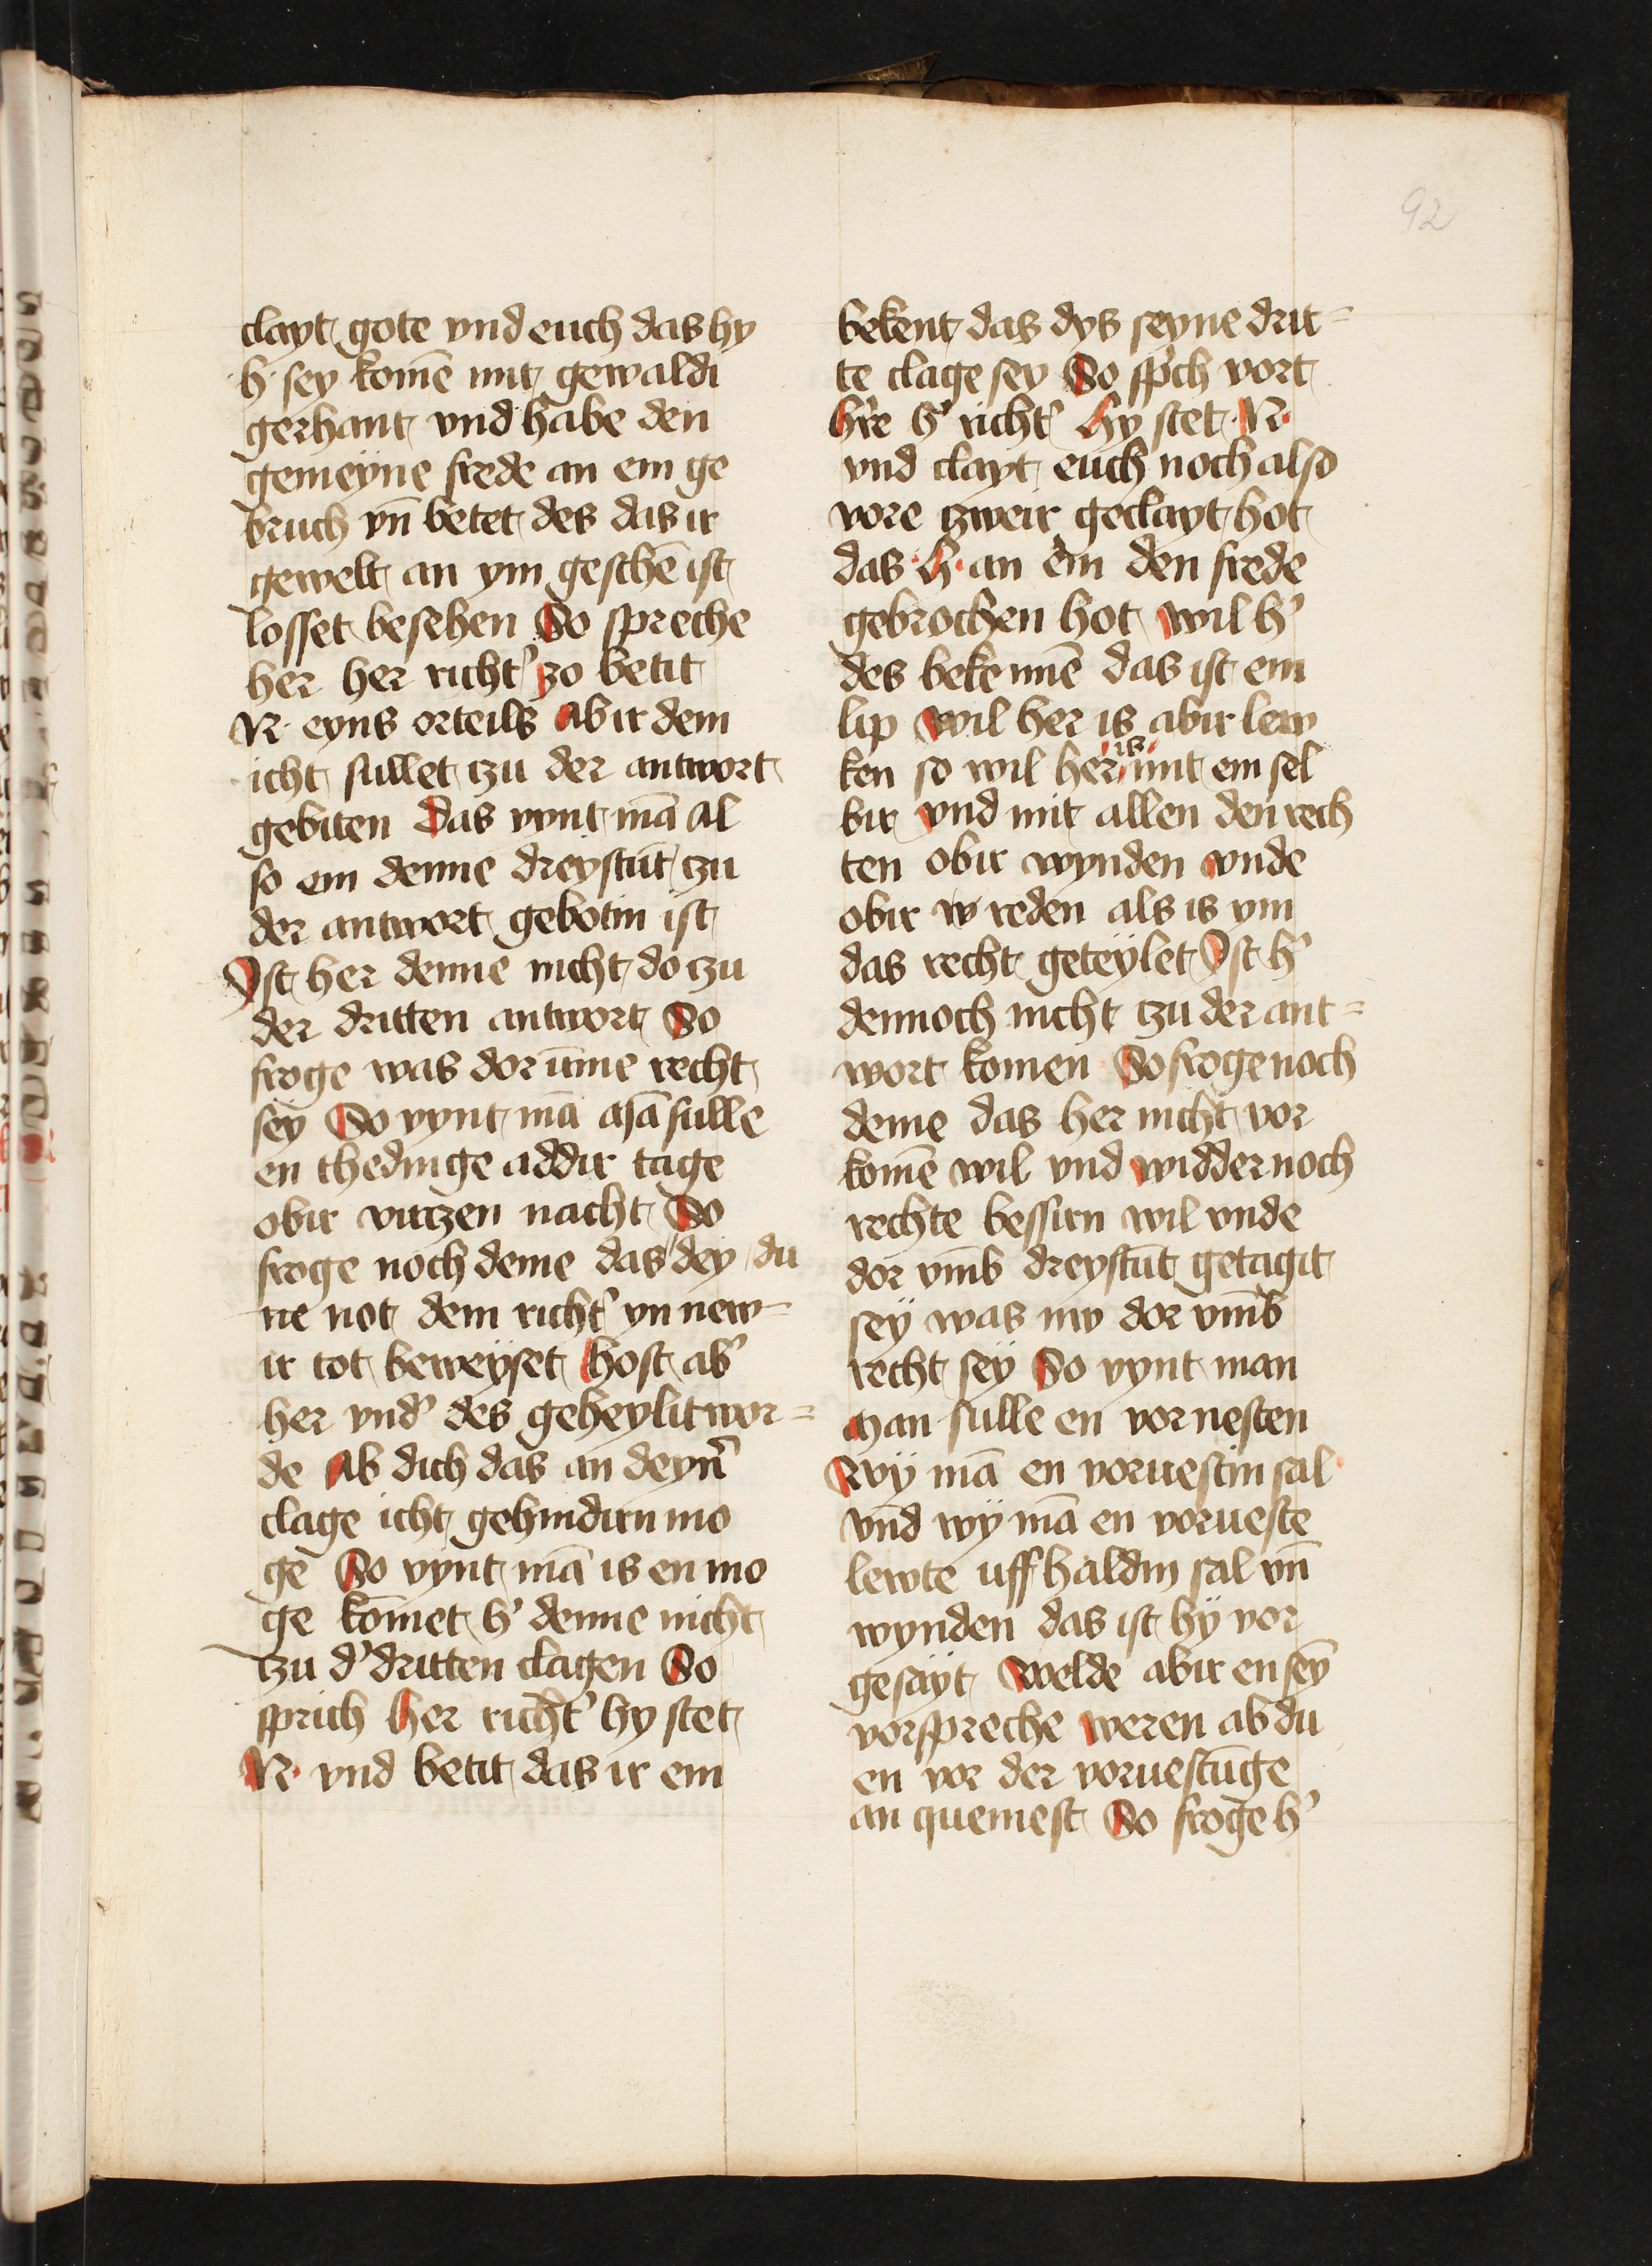 92
clayt gote vnd euch das hy
·h· sey komē mit gewaldi
gerhant vnd habe den
gemeyne frede an em ge
bruch vn̄ betet des das ir
gewelt an ym geschē ist
losset besehen So spreche
her her richt' zo betit
N· eyns orteils Ab ir dem
icht sullet tzu der antwort
gebiten Das vynt mā Al
so em denne dreystūt tzu
der antwort gebotin ist
Ist her denne nicht do tzu
der dritten antwort So
froge was dor ūme recht
sey So vynt mā Mā sulle
en thedinge addir tage
obir virtzen nacht So
froge noch deme das dey du
ne not dem richt' yn new=
ir tot beweyset Host ab'
her vnd' des geheylit wor=
de Ab dich das an deyn̄
clage icht gehindirn mo
ge So vynt mā is en mo
ge kōmet h' denne nicht
tzu d' dritten clagen So
sprich her richt' hy stet
N· vnd betit das ir em
bekent das dys seyne drit=
te clage sey So sp'ch vort
hr̄e h' richt' hy stet ·N·
vnd clayt euch noch also
vore tzweir geclayt hot
das ·h· an em den frede
gebrochen hot wil h'
des bekennē das ist em
lip wil her is abir lew
ken so wil her is mit em sel
bir vnd mit allen den rech
ten obir wynden vnde
obir w reden als is ym
das recht geteylet Ist h'
dennoch nicht tzu der ant=
wort komen So froge noch
deme das her nicht vor
komē wil vnd widder noch
rechte bessirn wil vnde
dor vm̄b dreystūt getagit
sey was nw dor vm̄b
recht sey So vynt man
Man sulle en vor uesten
Wy mā en voruestin sal
vnd wy mā en vorueste
lewte uff haldin sal vn̄
wynden das ist hy vor
gesayt Welde abir en sey̅
vorspreche weren ab du
en vor der voruestūge
an quemest So froge h'